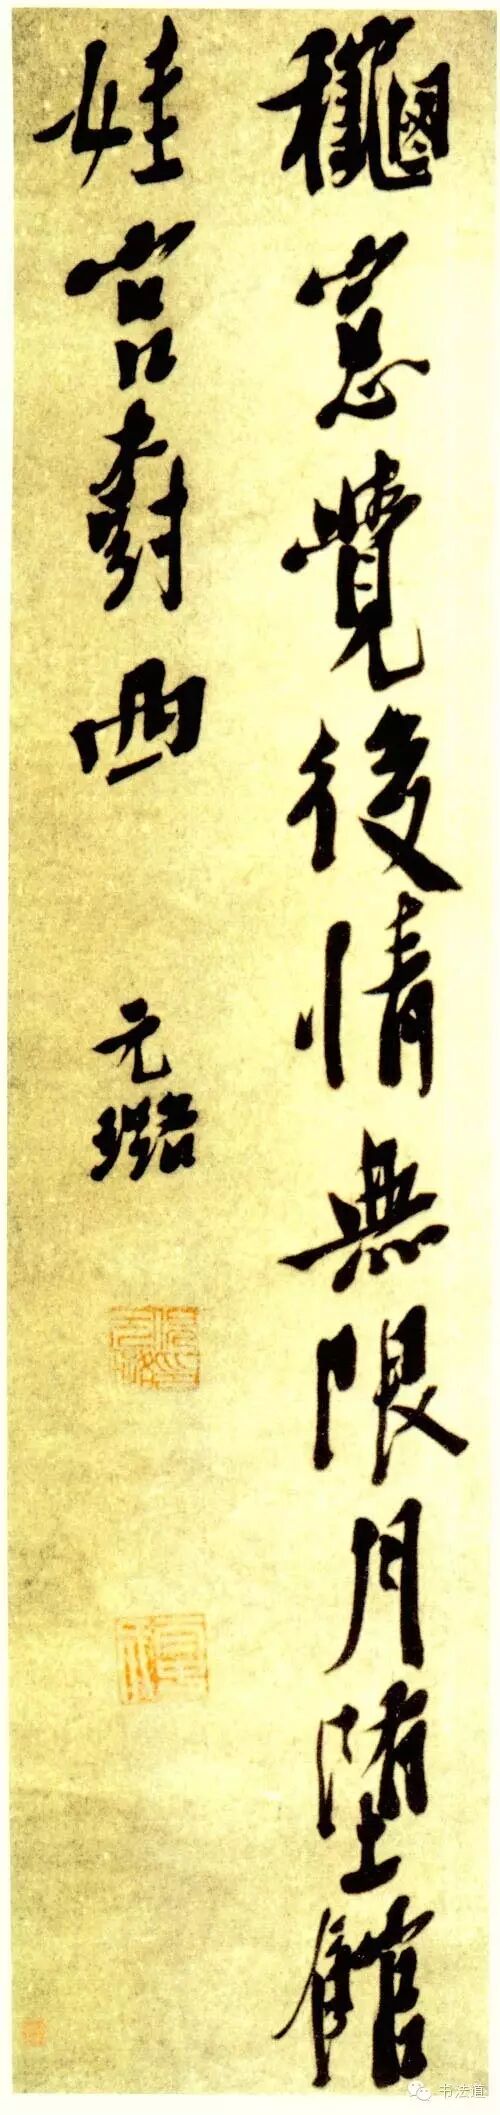 龝窓覺後情無限月墮館
娃宮樹西
元璐
书法道